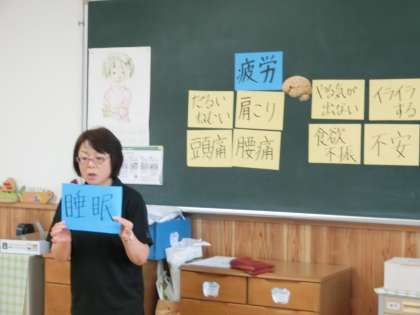 疲労
だるい
ねむい
肩こり
やる気が
出ない
イライラ
する
頭痛
腰痛
食欲
不振
不安
睡眠